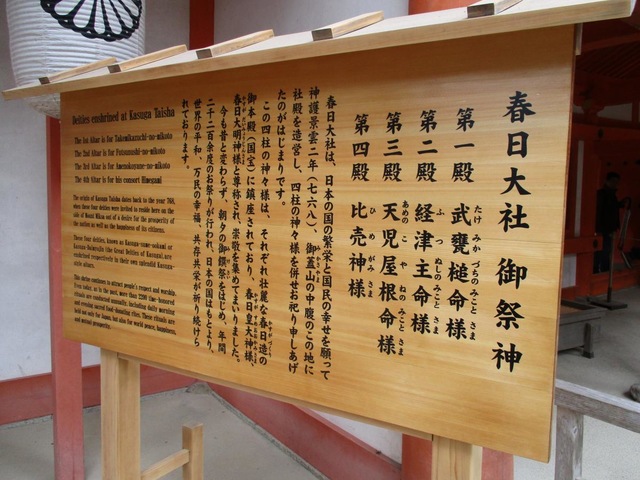 春日大社 御祭神
第一殿 武甕槌命様
たけ みか づちのみこと さま
第二殿 経津主命様
ふ つ ぬしのみこと さま
第三殿 天児屋根命様
あめの こ や ねの みこと さま
第四殿 比売神様
ひ め がみ さま
春日大社は、日本の国の繁栄と国民の幸せを願って
神護景雲二年(七六八)、御蓋山の中腹のこの地に
社殿を造営し、四柱の神々様を併せお祀り申しあげ
たのがはじまりです。
この四柱の神々様は、それぞれ壮麗な春日造の
御本殿(国宝)に鎮座されており、春日皇大神様、
春日大明神様と尊称され、崇敬を集めてまいりました。
今も昔と変わらず、朝夕の御饌祭をはじめ、年間
二千二百余度のお祭りが行われ、日本の国はもとより、
世界の平和、万民の幸福、共存共栄が祈り続けら
れております。
Deities enshrined at Kasuga Taisha
The 1st Altar is for Takemikazuchi-no-mikoto
The 2nd Altar is for Futsunushi-no-mikoto
The 3rd Altar is for Amenokoyane-no-mikoto
The 4th Altar is for his consort Himegami
The origin of Kasuga Taisha dates back to the year 768,
when these four deities were invited to reside here on the
side of Mount Mikasa out of a desire for the prosperity of
the nation as well as the happiness of its citizens.
These four deities, known as Kasuga-sume-ookami or
Kasuga-Daimyojin (the Great Deities of Kasuga), are
enshrined respectively in their own splendid Kasuga-
style altars.
This shrine continues to attract people's respect and worship.
Even today, as in the past, more than 2200 time-honored
rituals are conducted annually, including daily morning
and evening sacred food-donating rites. These rituals are
held not only for Japan, but also for world peace, happiness,
and mutual prosperity.